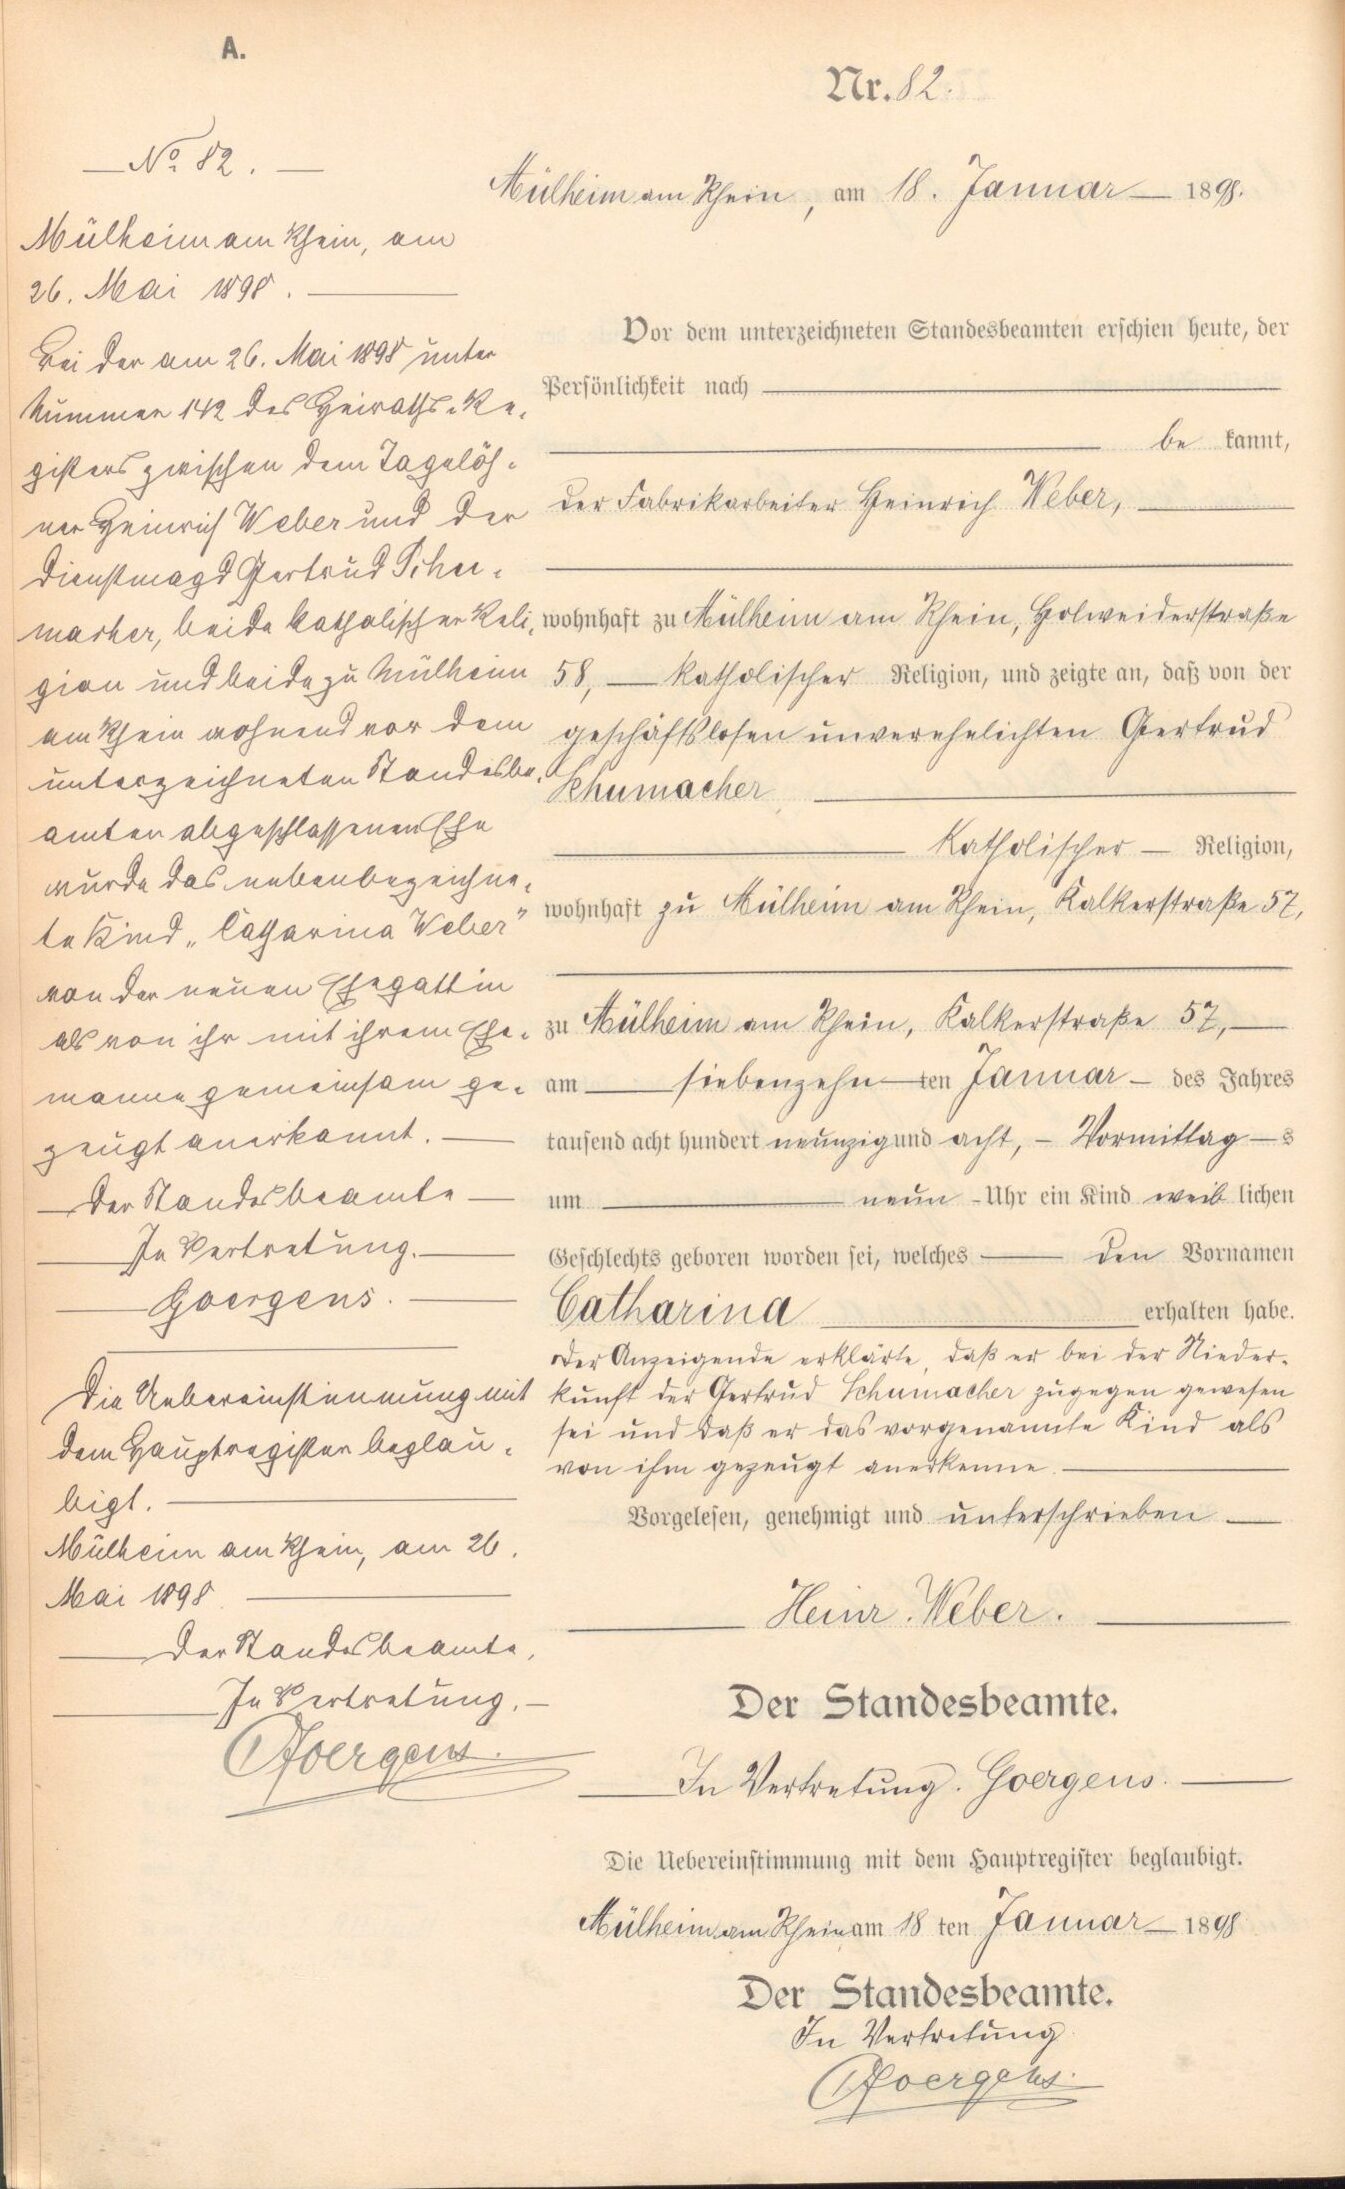 A.
Nr. 82.
Mülheim am Rhein, am 18. Januar 1898.
Vor dem unterzeichneten Standesbeamten erschien heute, der
Persönlichkeit nach
be kannt,
der Fabrikarbeiter Heinrich Weber,
wohnhaft zu Mülheim am Rhein, Holweiderstraße
58, katholischer Religion, und zeigte an, daß von der
geschäftslosen unverehelichten Gertrud
Schumacher
katholischer Religion,
wohnhaft zu Mülheim am Rhein, Kalkerstraße 57,
zu Mülheim am Rhein, Kalkerstraße 57,
am siebenzehn ten Januar des Jahres
tausend acht hundert neunzig und acht, Vormittag s
um neun Uhr ein Kind weib lichen
Geschlechts geboren worden sei, welches den Vornamen
Catharina erhalten habe.
Der Anzeigende erklärte, daß er bei der Nieder-
kunft der Gertrud Schumacher zugegen gewesen
sei und daß er das vorgenannte Kind als
von ihm gezeugt anerkenne.
Vorgelesen, genehmigt und unterschrieben
Heinr. Weber.
Der Standesbeamte.
In Vertretung. Goergens.
Die Uebereinstimmung mit dem Hauptregister beglaubigt.
Mülheim am Rhein am 18 ten Januar 1898
Der Standesbeamte.
In Vertretung
Goergens.
No 82.
Mülheim am Rhein, am
26. Mai 1898.
Bei der am 26. Mai 1898 unter
Nummer 142 des Heiraths-Re-
gisters zwischen dem Tagelöh-
ner Heinrich Weber und der
Dienstmagd Gertrud Schu-
macher, beide katholischer Reli-
gion und beide zu Mülheim
am Rhein wohnend vor dem
unterzeichneten Standesbe-
amten abgeschlossenen Ehe
wurde das nebenbezeichne-
te Kind „Catharina Weber"
von der neuen Ehegattin
als von ihr mit ihrem Ehe-
manne gemeinsam ge-
zeugt anerkannt.
Der Standesbeamte
In Vertretung.
Goergens.
Die Uebereinstimmung mit
dem Hauptregister beglau-
bigt.
Mülheim am Rhein, am 26.
Mai 1898
Der Standesbeamte,
In Vertretung.
Goergens.